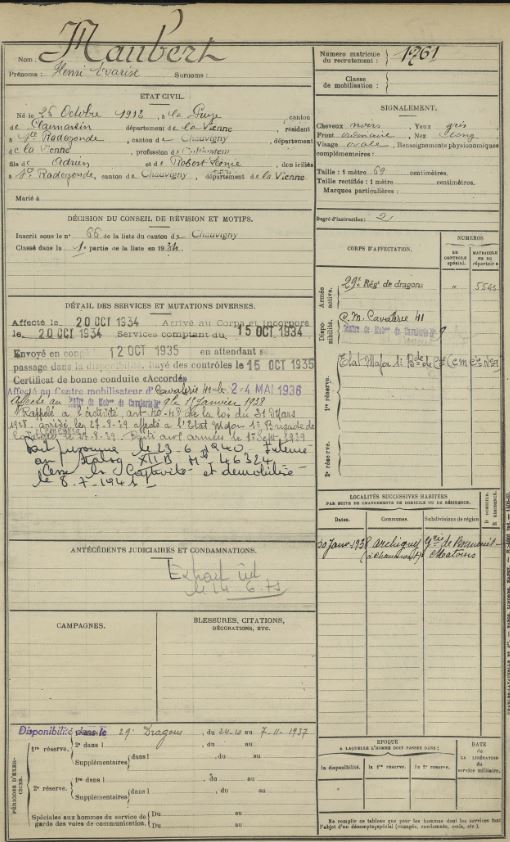 Nom : Maubert
Prénoms : Henri Evariste Surnoms :
Numéro matricule du recrutement : 1761
Classe de mobilisation :
ÉTAT CIVIL.
Né le 26 Octobre 1912, à canton
de département de la Vienne, résident
à Ste Radegonde, canton de Chauvigny, département
de la Vienne, profession de Cultivateur
fils de Adrien et de Robert domiciliés
à Ste Radegonde, canton de Chauvigny, département de la Vienne
Marié à
SIGNALEMENT.
Cheveux noirs Yeux gris
Front ordinaire Nez long
Visage ovale Renseignements physionomiques
complémentaires :
Taille : 1 mètre 69 centimètres.
Taille rectifiée : 1 mètre centimètres.
Marques particulières :
Degré d'instruction : 2
DÉCISION DU CONSEIL DE RÉVISION ET MOTIFS.
Inscrit sous le n° 66 de la liste du canton de Chauvigny
Classé dans la 1re partie de la liste en 1934
CORPS D'AFFECTATION.
NUMÉROS
AU CONTRÔLE spécial.
MATRICULE OU AU répertoire
Armée active.
29e Régt de dragons
" 
Disponibilité.
C.M. Cavalerie 41
1re réserve.
Etat Major 1re Bde de
2e réserve.
DÉTAIL DES SERVICES ET MUTATIONS DIVERSES.
Affecté le 20 OCT 1934 Arrivé au Corps et incorporé
le 20 OCT 1934 Services comptant du 15 OCT 1934
Envoyé en congé 12 OCT 1935 en attendant s
passage dans la disponibilité. Rayé des contrôles le 15 OCT 1935
Certificat de bonne conduite «Accordé»
Affecté au Centre mobilisateur de Cavalerie 41 le 2-4 MAI 1936
Affecté au Centre de Mobon de Cavalerie n° 9 le 15 Janvier 1938
Rappelé à l'activité art 40-48 de la loi du 31 Mars
1928. arrivé le 27-8-39 affecté à l'Etat Major 1re Brigade de
Cavalerie le 27-8-39. aux armées le 1er Sept 1939
Fait prisonnier le 23-6-1940. Interné
au Stalag XII B Mle 46324
et démobilisé
le 8.7.1941
LOCALITÉS SUCCESSIVES HABITÉES
PAR SUITE DE CHANGEMENT DE DOMICILE OU DE RÉSIDENCE.
Dates. Communes. Subdivisions de région
D. domicile. R. résidence.
20 Janv. 1938 Archigny Gie de Bonneuil-
Matours
ANTÉCÉDENTS JUDICIAIRES ET CONDAMNATIONS.
Extrait
le 14 6.71
CAMPAGNES.
BLESSURES, CITATIONS,
DÉCORATIONS, ETC.
PÉRIODES D'EXERCICES.
Disponibilité dans le 29e Dragons, du 24-10 au 7-11-1937
1re réserve.
2e dans l , du au
Supplémentaires dans l , du au
, du au
2e réserve.
1re dans l , du au
Supplémentaires dans l , du au
, du au
Spéciales aux hommes du service de
garde des voies de communication.
Du au
Du au
ÉPOQUE
A LAQUELLE L'HOMME DOIT PASSER DANS :
la disponibilité. la 1re réserve. la 2e réserve.
DATE
de
LA LIBÉRATION
du
service militaire.
Ne remplir ce tableau que pour les hommes dont les services font
l'objet d'un décompte spécial (rengagés, condamnés, omis, etc.)